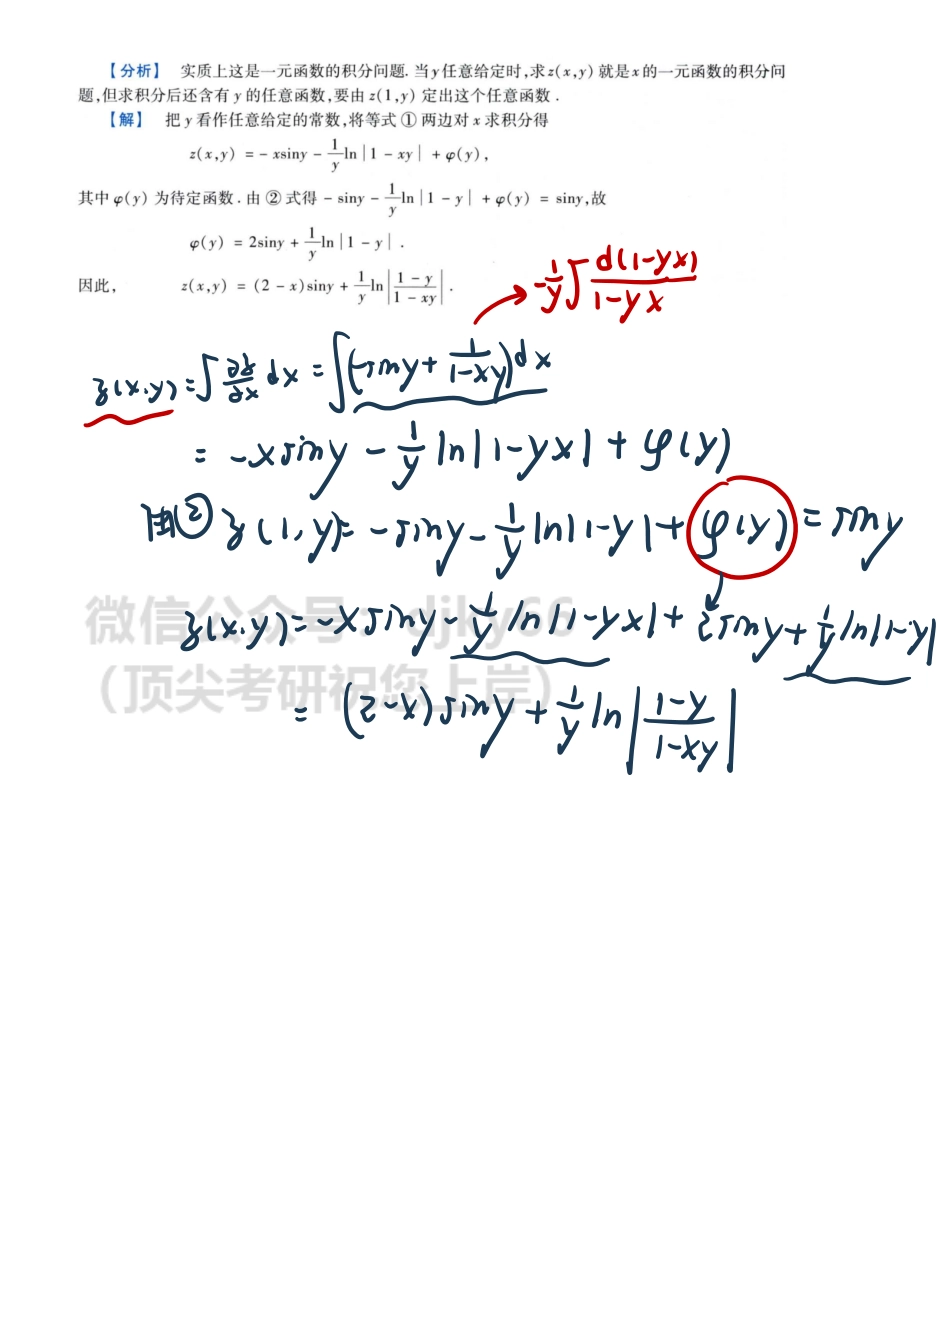 【分析】 实质上这是一元函数的积分问题.当y任意给定时,求z(x,y)就是x的一元函数的积分问
题,但求积分后还含有y的任意函数,要由z(1,y)定出这个任意函数.
【解】 把y看作任意给定的常数,将等式①两边对x求积分得
z(x,y) = - xsiny - 1/y ln|1 - xy| + φ(y),
其中φ(y)为待定函数.由②式得 - siny - 1/y ln|1 - y| + φ(y) = siny,故
φ(y) = 2siny + 1/y ln|1 - y|.
因此, z(x,y) = (2 - x)siny + 1/y ln|(1 - y)/(1 - xy)|.
-1/y ∫ d(1-yx)/(1-yx)
z(x,y) = ∫ ∂z/∂x dx = ∫(-siny + 1/(1-xy))dx
= -xsiny - 1/y ln|1-yx| + φ(y)
由② z(1,y) = -siny - 1/y ln|1-y| + φ(y) = siny
z(x,y) = -xsiny - 1/y ln|1-yx| + 2siny + 1/y ln|1-y|
= (2-x)siny + 1/y ln|(1-y)/(1-xy)|
微信公众号：djky66
（顶尖考研祝您上岸）